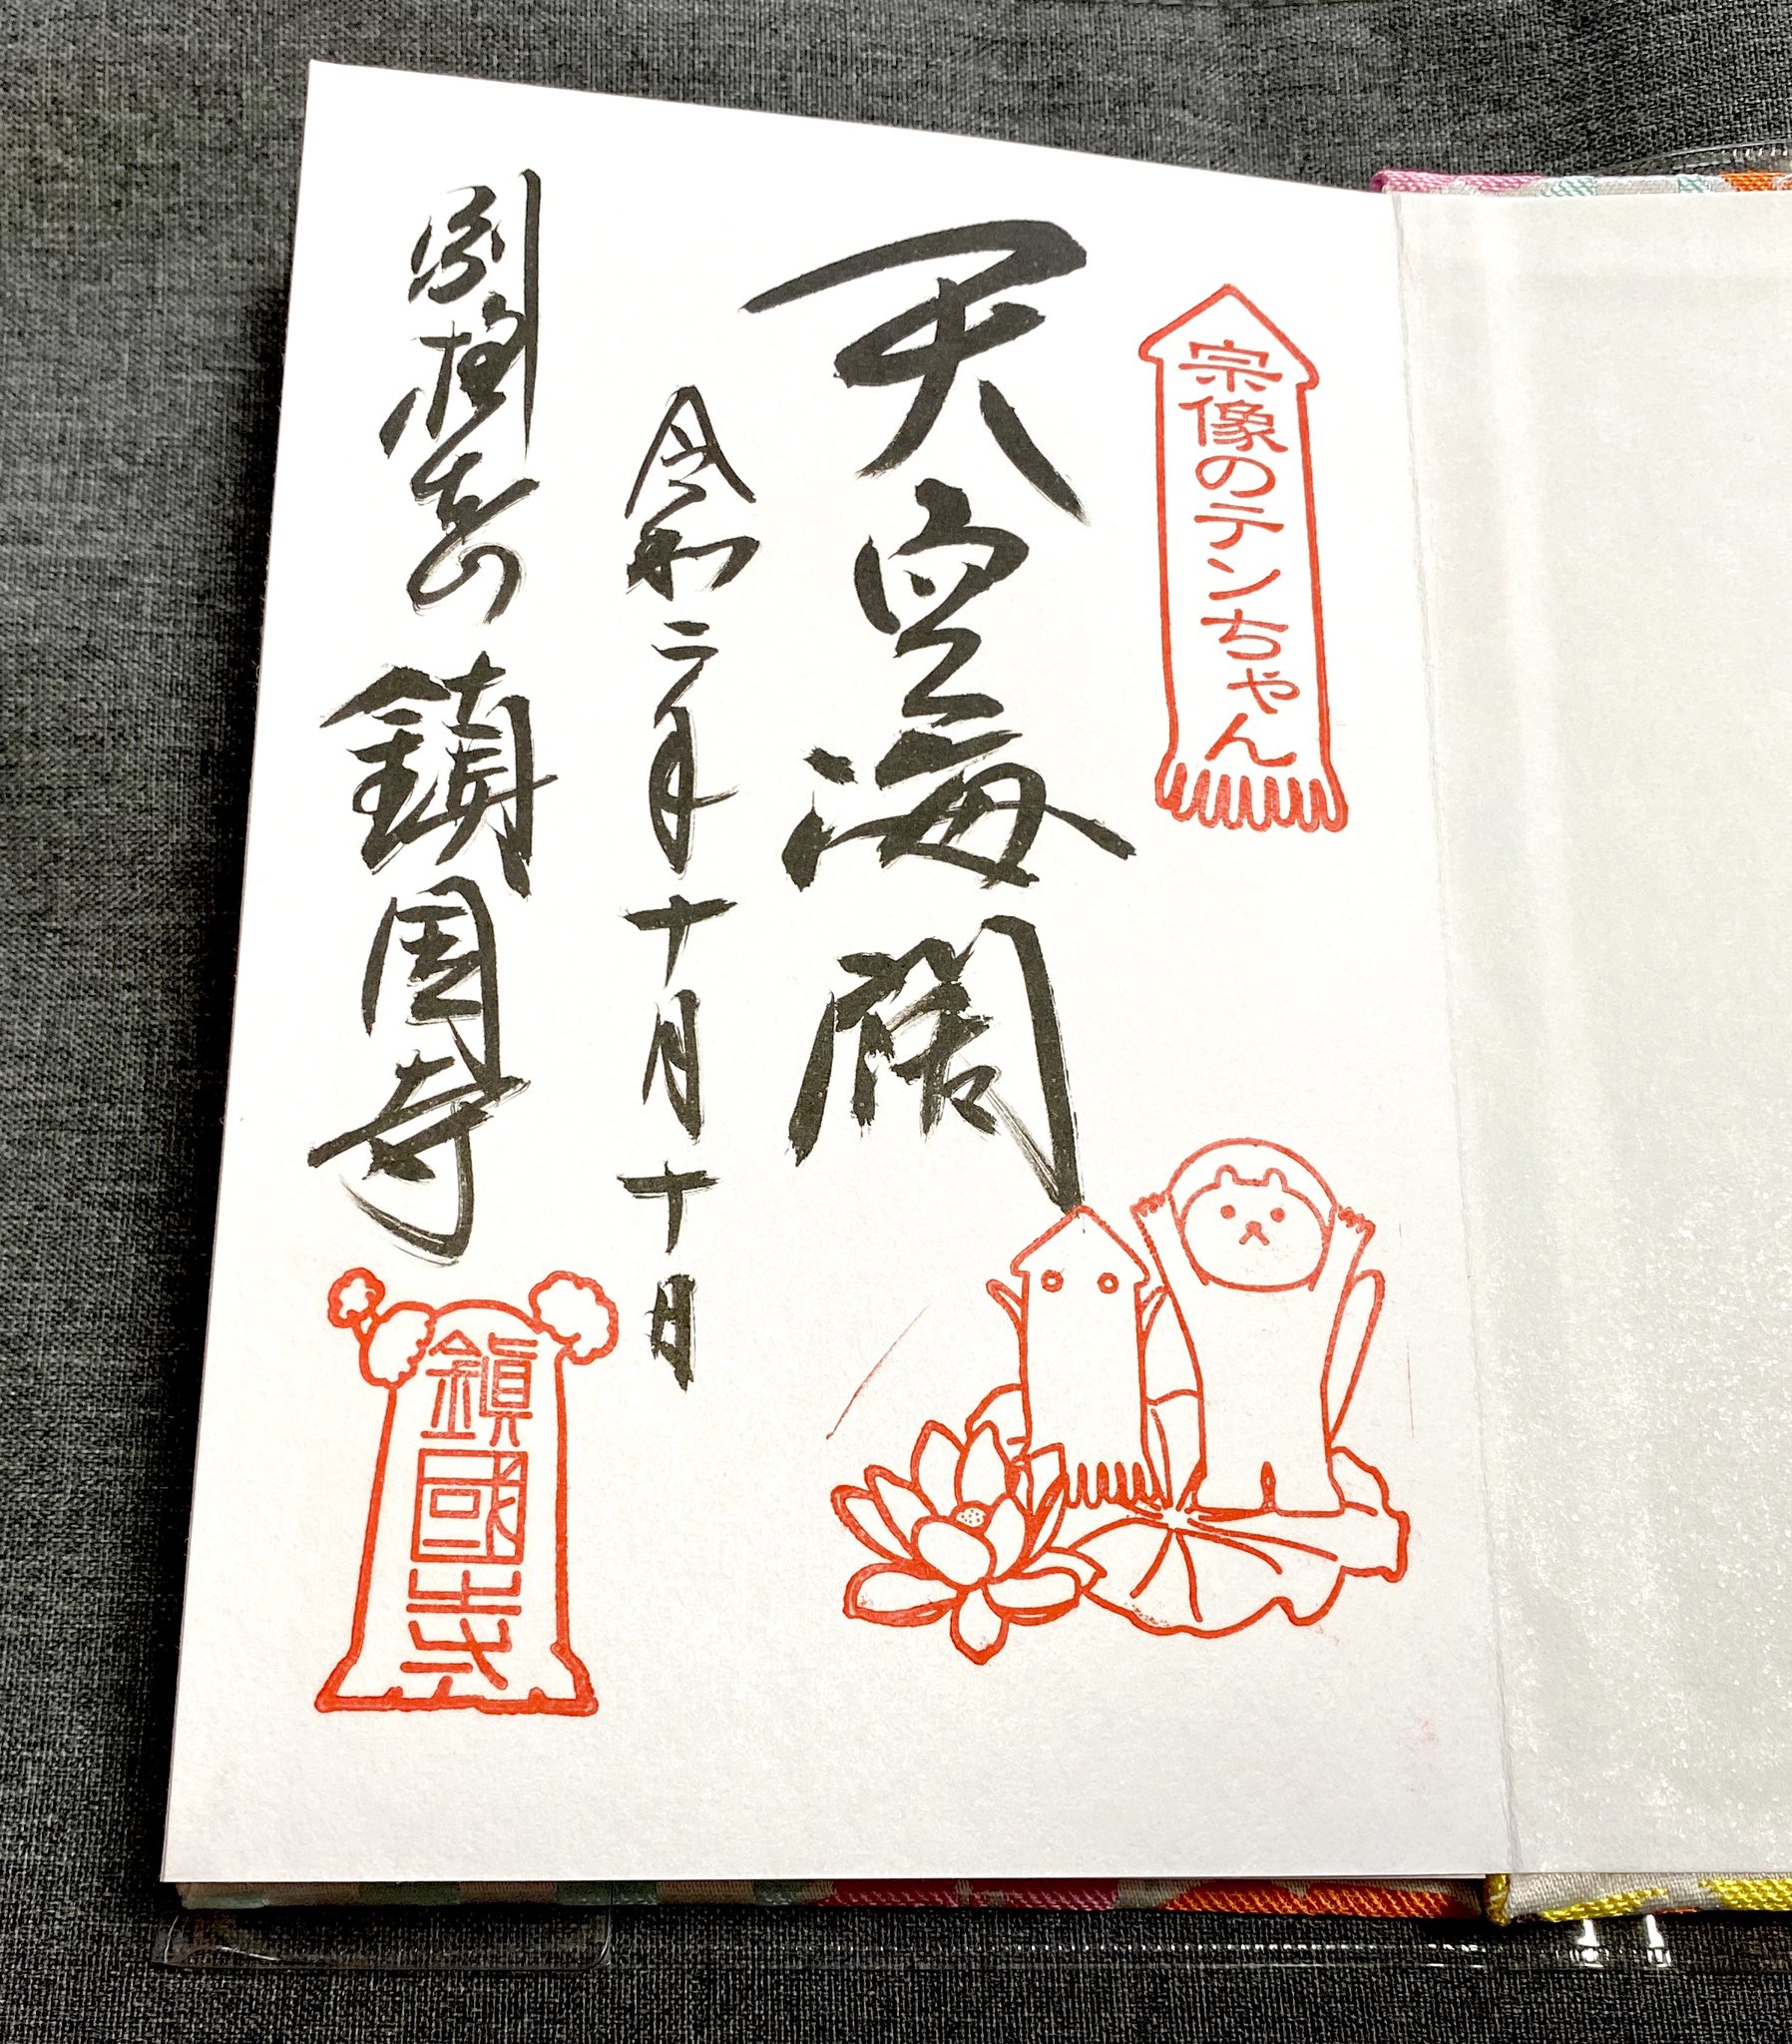 宗像のテンちゃん
天空海闊
令和二年十月十日
別格本山 鎮国寺
鎭國寺